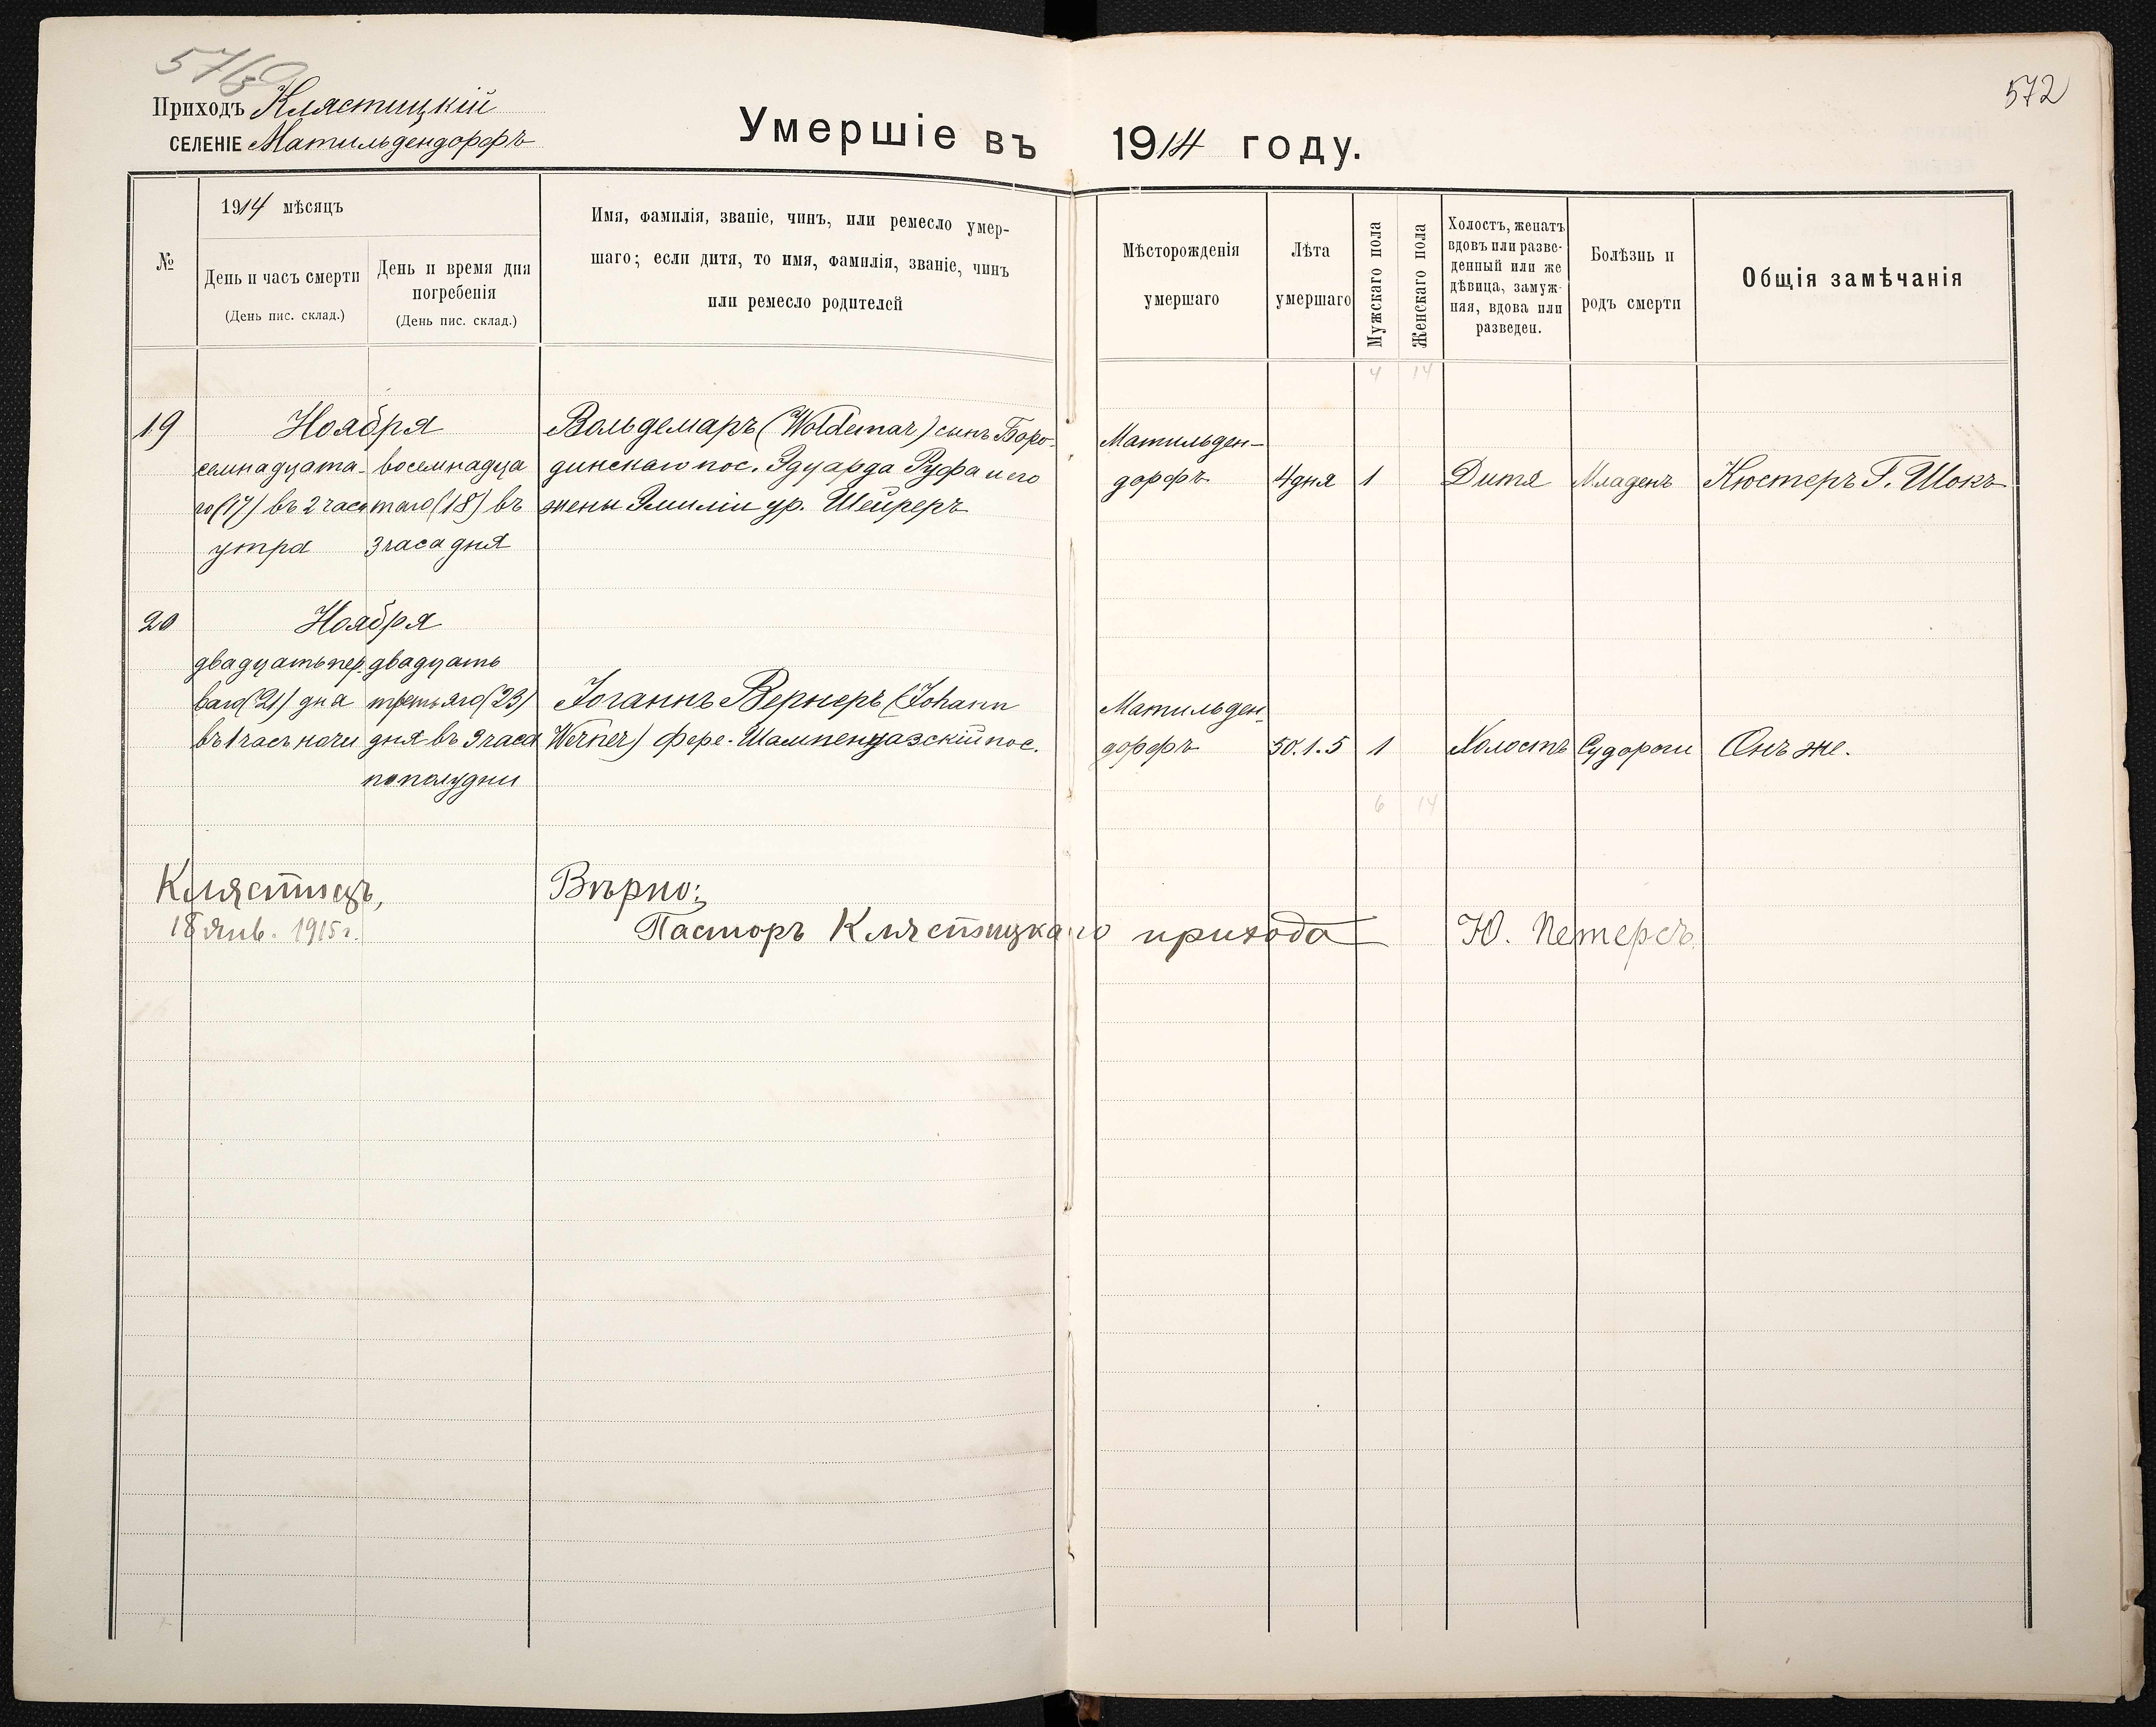 572
Приходъ Клястицкій
СЕЛЕНІЕ Матильдендорфъ
Умершіе въ 1914 году.
№
1914 мѣсяцъ
День и часъ смерти
(День пис. склад.)
День и время дня
погребенія
(День пис. склад.)
Имя, фамилія, званіе, чинъ, или ремесло умер-
шаго; если дитя, то имя, фамилія, званіе, чинъ
или ремесло родителей
Мѣсторожденія
умершаго
Лѣта
умершаго
Мужскаго пола
Женскаго пола
Холостъ, женатъ
вдовъ или разве-
денный или же
дѣвица, замуж-
няя, вдова или
разведен.
Болѣзнь и
родъ смерти
Общія замѣчанія
4 14
19
Ноября
семнадцата-
го (17) въ 2 часа
утра
восемнадца
таго (18) въ
3 часа дня
Вольдемаръ (Woldemar) сынъ Боро-
динскаго пос. Эдуарда Руфа и его
жены Эмиліи ур. Шейреръ
Матильден-
дорфъ
4 дня
1
Дитя
Младенъ
Кюстеръ Г. Шокъ
20
Ноября
двадцать пер.
ваго (21) дня
въ 1 часъ ночи
двадцать
третьяго (23)
дня въ 3 часа
по полудни
Іоганнъ Вернеръ (Johann
Werner) фере-Шампенуазскій пос.
Матильден-
дорфъ
50.1.5
1
Холостъ
Судороги
Онъ же.
6 14
Клястицъ,
18 янв. 1915 г.
Вѣрно:
Пасторъ Клястицкаго прихода Ю. Петерсъ